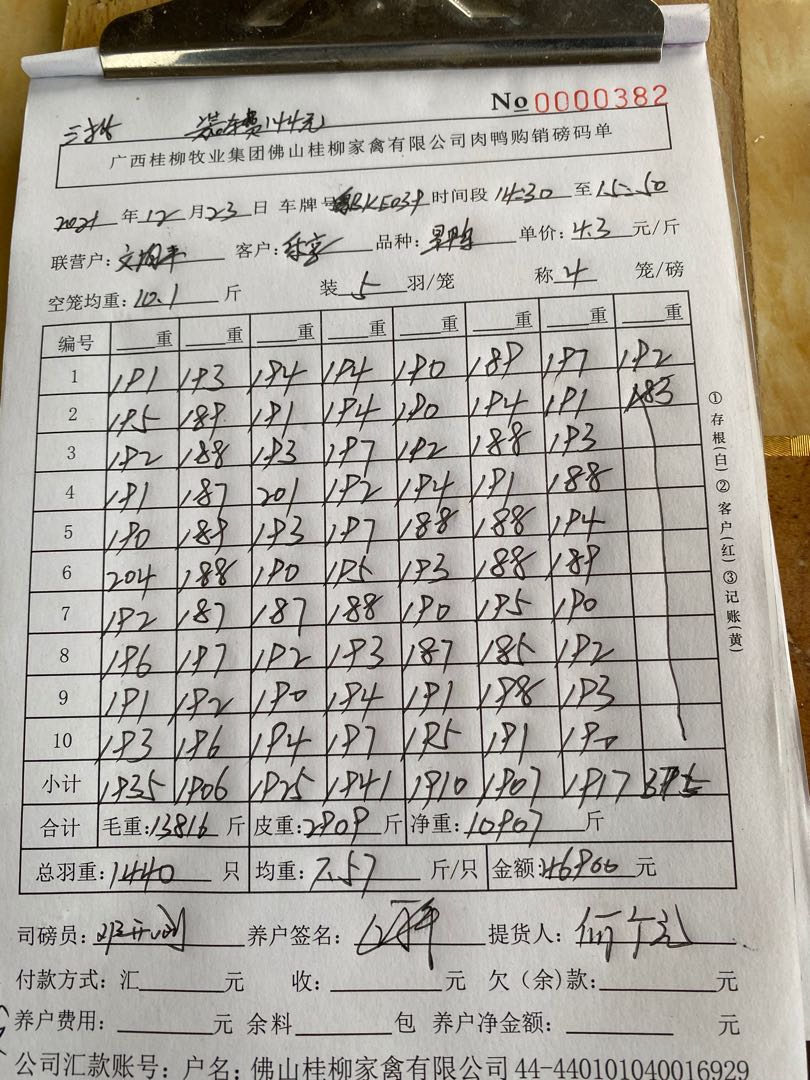 No 0000382
装车费144元
广西桂柳牧业集团佛山桂柳家禽有限公司肉鸭购销磅码单
2021 年 12 月 23 日 车牌号 时间段 14:30 至 15:50
联营户: 客户: 品种: 单价: 4.3 元/斤
空笼均重: 10.1 斤 装 5 羽/笼 称 4 笼/磅
编号 重 重 重 重 重 重 重 重
1 191 193 194 194 190 189 197 192
2 195 189 191 194 190 194 191 183
3 192 188 193 197 192 188 193
4 191 187 201 192 194 191 188
5 190 189 193 197 188 188 194
6 204 188 190 195 193 188 189
7 192 187 187 188 190 195 190
8 196 197 192 193 187 185 192
9 191 192 190 194 191 198 193
10 193 196 194 197 195 191 190
小计 1935 1906 1925 1941 1910 1907 1917 375
合计 毛重: 13816 斤 皮重: 2909 斤 净重: 10907 斤
总羽重: 1440 只 均重: 7.57 斤/只 金额: 46900 元
司磅员: 养户签名: 提货人:
付款方式: 汇 元 收: 元 欠(余)款: 元
养户费用: 元 余料 包 养户净金额: 元
公司汇款账号: 户名: 佛山桂柳家禽有限公司 44-440101040016929
①存根(白) ②客户(红) ③记账(黄)